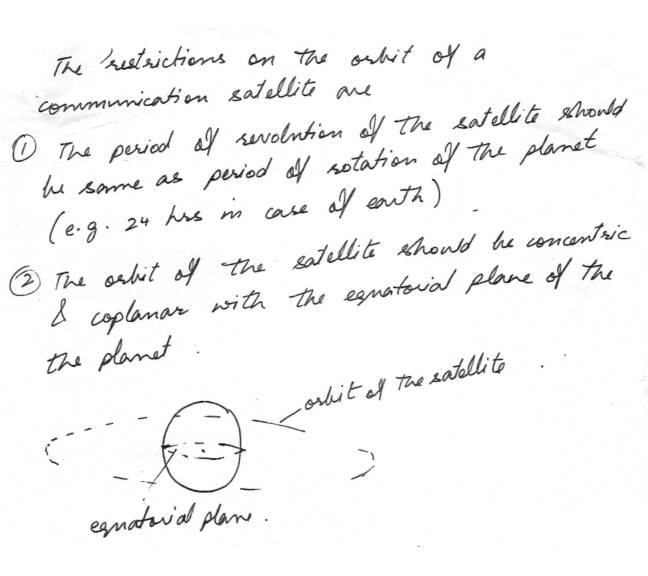 The restrictions on the orbit of a
communication satellite are
① The period of revolution of the satellite should
be same as period of rotation of the planet
(e.g. 24 hrs in case of earth)
② The orbit of the satellite should be concentric
& coplanar with the equatorial plane of the
the planet.
orbit of the satellite
equatorial plane.